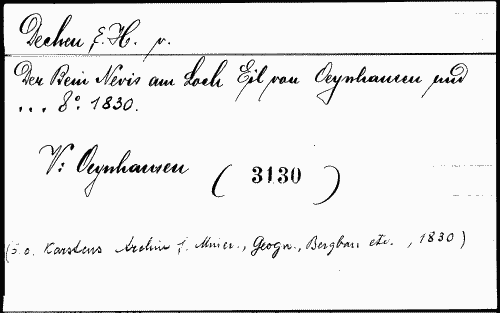 Dechen, E. H. v.
Der Bein Nevis am Loch Eil von Oeynhausen und
... 8°. 1830.
V: Oeynhausen
( 3130 )
(s. o. Karstens Archiv f. Miner., Geogn., Bergbau etc. , 1830)